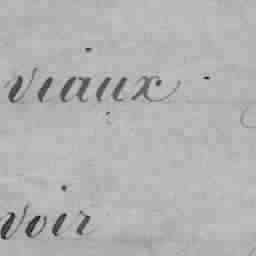 viaux
voir